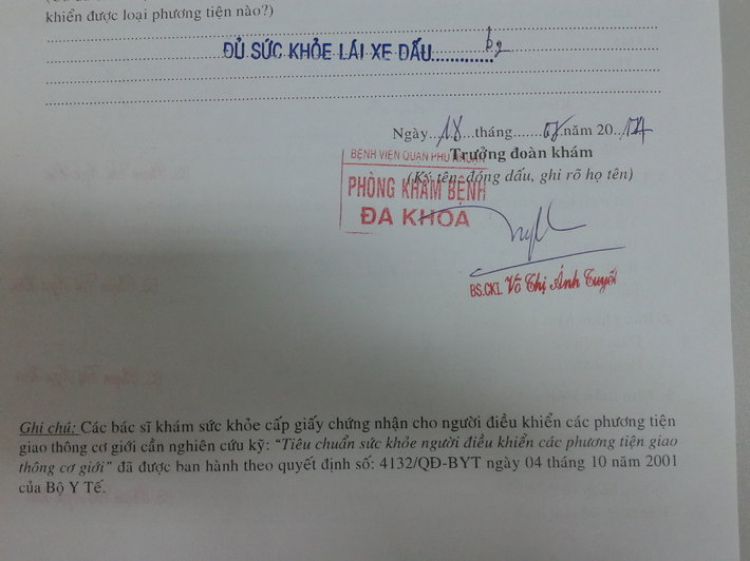 khiển được loại phương tiện nào?)
ĐỦ SỨC KHỎE LÁI XE DẤU............. b2
Ngày...18...tháng.......08.năm 20..
Trưởng đoàn khám
BỆNH VIỆN QUẬN PHÚ
(Ký tên, đóng dấu, ghi rõ họ tên)
PHÒNG KHÁM BỆNH
ĐA KHOA
BS.CKI. Võ Thị Ánh Tuyết
Ghi chú: Các bác sĩ khám sức khỏe cấp giấy chứng nhận cho người điều khiển các phương tiện
giao thông cơ giới cần nghiên cứu kỹ: “Tiêu chuẩn sức khỏe người điều khiển các phương tiện giao
thông cơ giới” đã được ban hành theo quyết định số: 4132/QĐ-BYT ngày 04 tháng 10 năm 2001
của Bộ Y Tế.